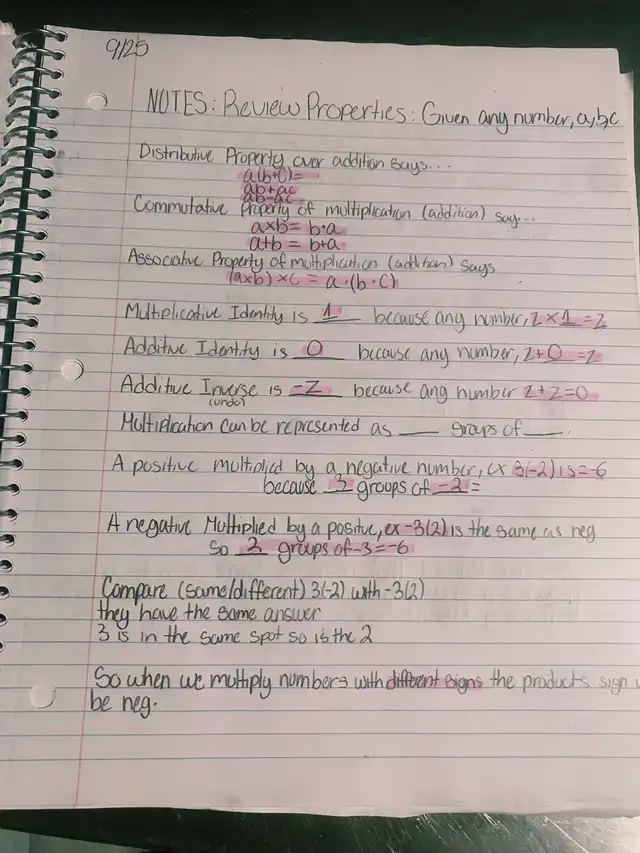 9/25
NOTES: Review Properties: Given any number, a,b,c
Distributive Property over addition says...
a(b+c)=
ab+ac
ab-ac
Commutative Property of multiplication (addition) say...
axb= b·a
a+b = b+a
Associative Property of multiplication (addition) says
(axb)×c = a·(b·c)
Multiplicative Identity is 1 because any number, z×1=z
Additive Identity is 0 because any number, z+0=z
Additive Inverse is -z because any number z+z=0
(undo)
Multiplication can be represented as ___ groups of ___.
A positive multiplied by a negative number, ex 3(-2) is=-6
because 3 groups of -2 =
A negative Multiplied by a positive, ex -3(2) is the same as neg
So 2 groups of -3=-6
Compare (same/different) 3(-2) with -3(2)
they have the same answer
3 is in the same spot so is the 2
So when we multiply numbers with different signs the products sign
be neg.